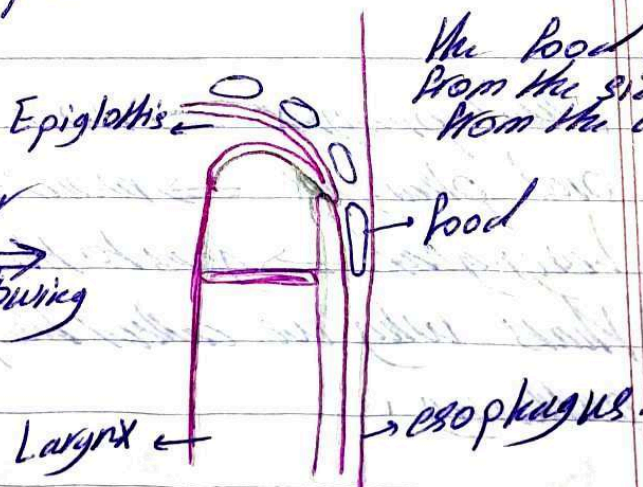 the food
from the
from the
Epiglottis
food
Larynx
esophagus